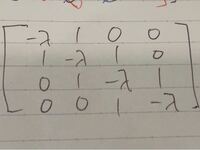 -λ 1 0 0
1 -λ 1 0
0 1 -λ 1
0 0 1 -λ